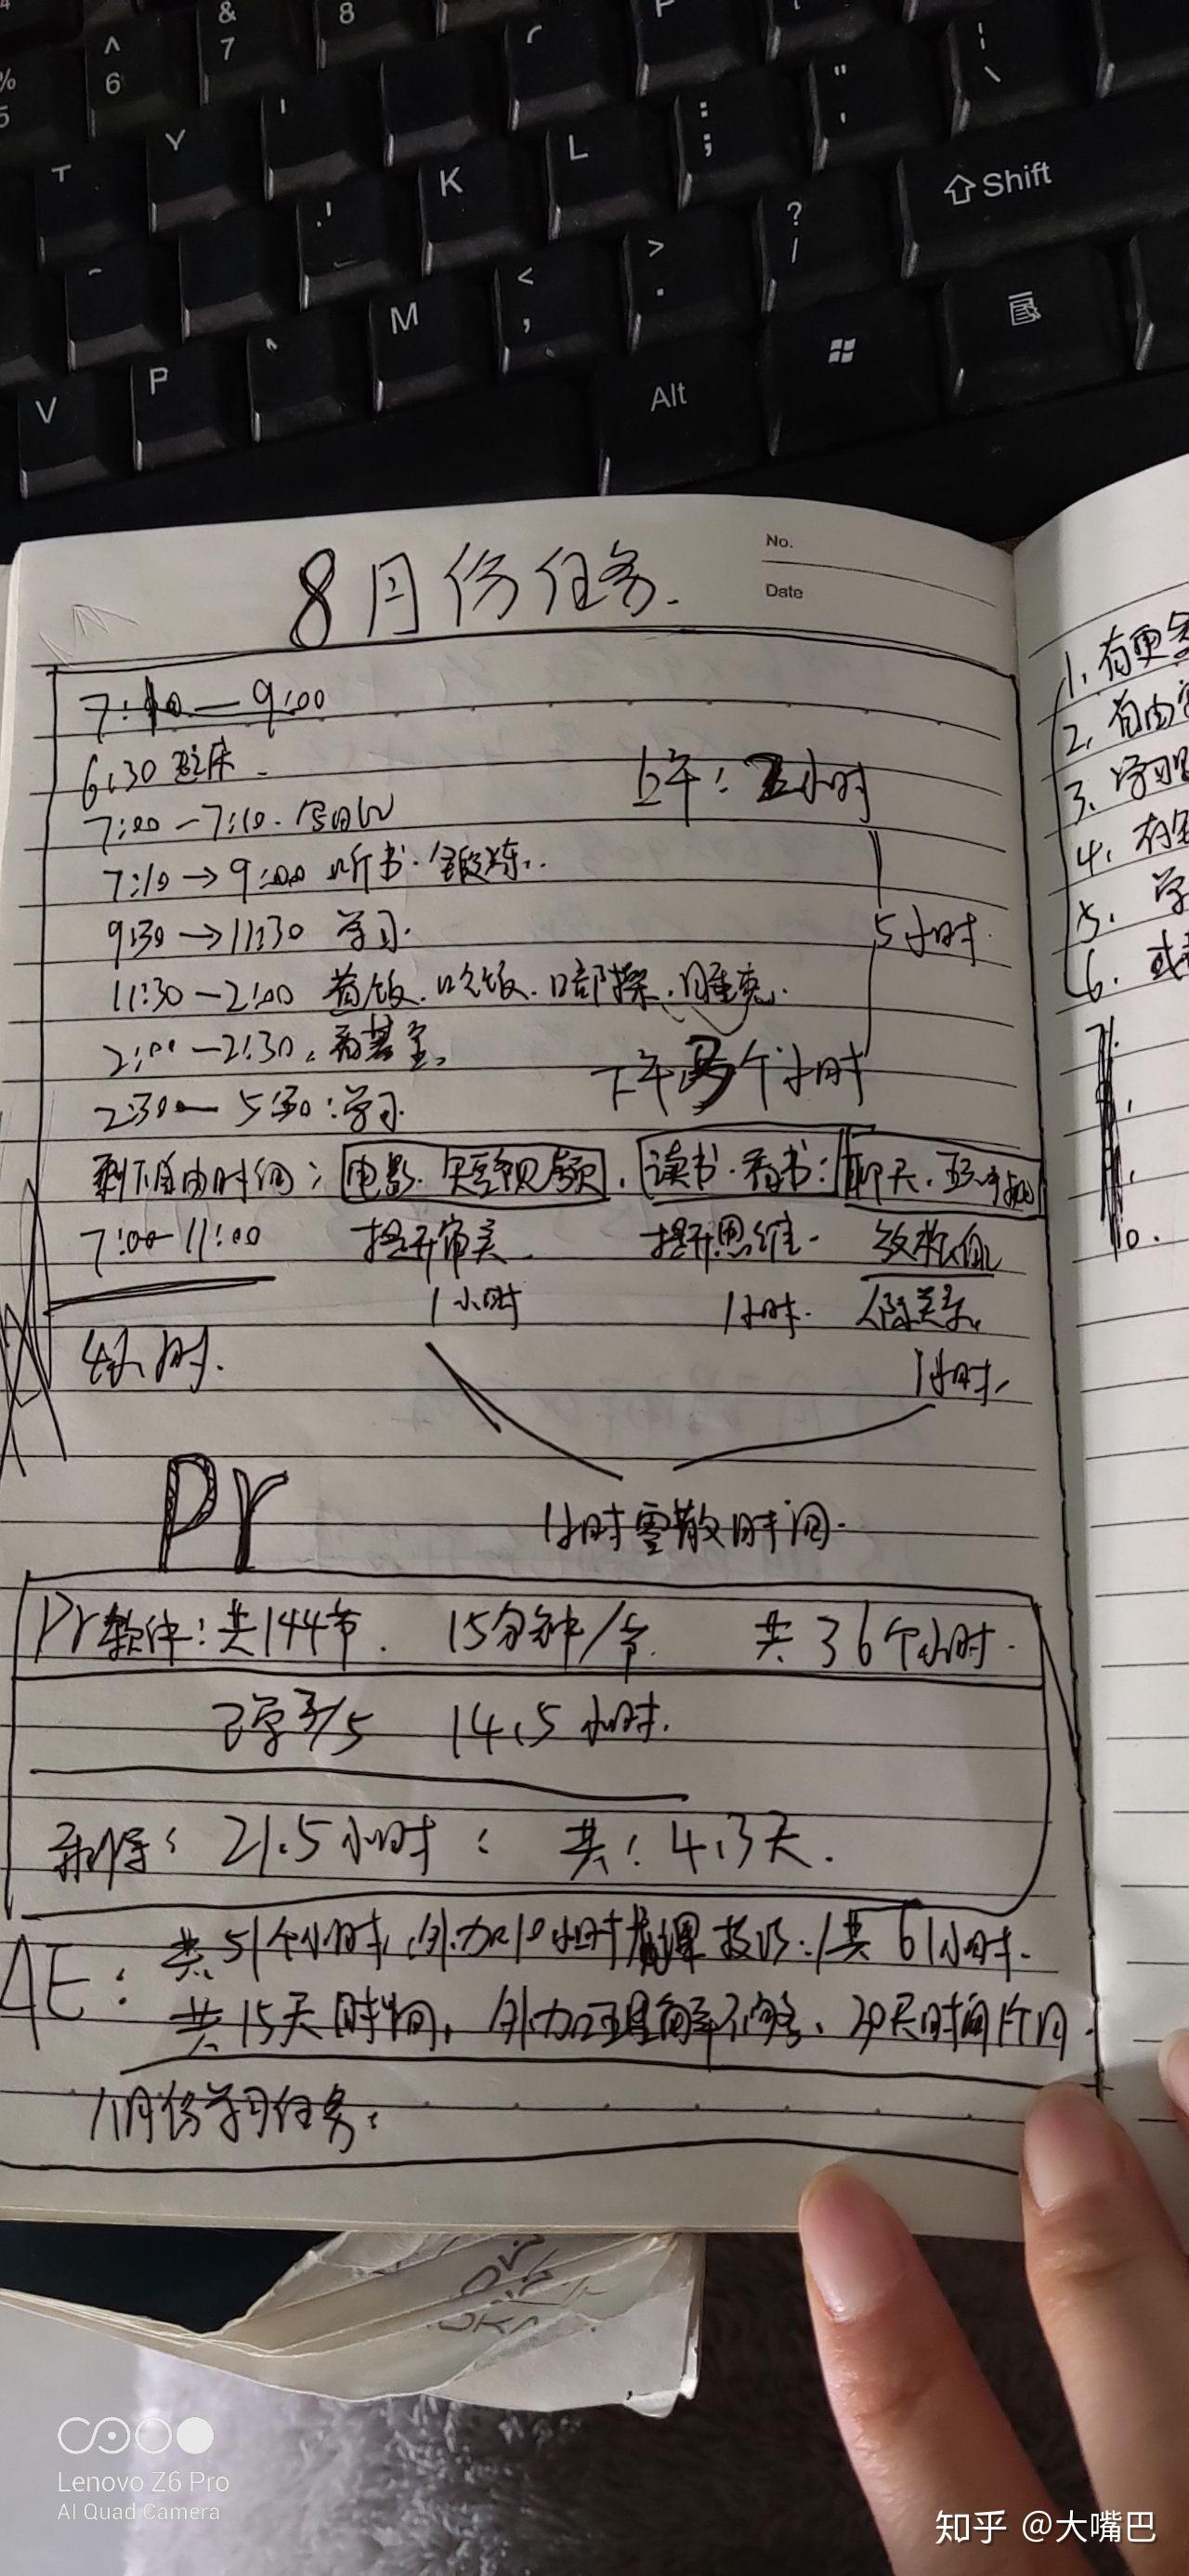 & 8
7
^
6
%
5
T
Y
L
K
:
;
"
'
⇧Shift
?
/
<
,
>
.
M
Alt
P
V
No.
Date
8月份任务.
7:10—9:00
6:30 起床.
上午:2小时
7:00—7:10.写日记
7:10→9:00 听书.锻炼.
9:30→11:30 学习.
5小时.
11:30—2:00 做饭.吃饭.口部操.睡觉.
2:00—2:30.看基金.
下午3个小时
2:30—5:30:学习.
剩下自由时间: 电影.短视频. 读书.看书: 聊天.
7:00—11:00 提升审美. 提升思维. 人际关系.
1小时 1小时. 1小时.
4小时.
Pr
1小时零散时间.
Pr软件:共144节. 15分钟/节. 共36个小时.
已学3/5 14.5小时.
剩余: 21.5小时: 共:4.3天.
AE: 共51个小时,外加10小时 课技巧.共61小时.
共15天时间,外加理解不够、30天时间1个月.
月份学习任务:
1、有更多
2、自由
3、学习
4、有
5、学
6、或
7.
10.
Lenovo Z6 Pro
AI Quad Camera
知乎 @大嘴巴